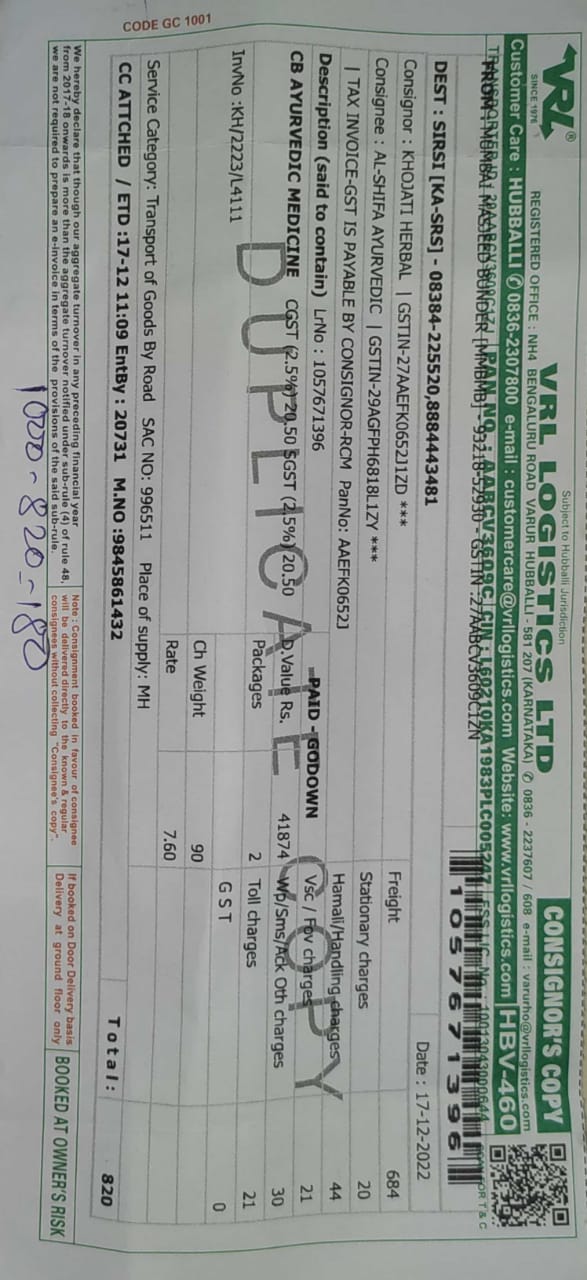 CODE GC 1001
Subject to Hubballi Jurisdiction
VRL ®
SINCE 1976
VRL LOGISTICS LTD
CONSIGNOR'S COPY
REGISTERED OFFICE : NH4 BENGALURU ROAD VARUR HUBBALLI - 581 207 (KARNATAKA) ✆ 0836 - 2237607 / 608 e-mail : varurho@vrllogistics.com
Customer Care : HUBBALLI ✆ 0836-2307800 e-mail : customercare@vrllogistics.com Website: www.vrllogistics.com HBV-460
PAN NO. : AABCV3609C CIN : L60210KA1983PLC005247
FROM : MUMBAI MASJEED BUNDER [MMBMB] - 93218-52930 - GSTIN :27AABCV3609C1ZN
1057671396
DEST : SIRSI [KA-SRS] - 08384-225520,8884443481
Date : 17-12-2022
Consignor : KHOJATI HERBAL | GSTIN-27AAEFK0652J1ZD ***
Consignee : AL-SHIFA AYURVEDIC | GSTIN-29AGFPH6818L1ZY ***
| TAX INVOICE-GST IS PAYABLE BY CONSIGNOR-RCM PanNo: AAEFK0652J
Description (said to contain) LrNo : 1057671396 PAID - GODOWN
CB AYURVEDIC MEDICINE CGST (2.5%) 20.50 SGST (2.5%) 20.50
D.Value Rs. 41874
InvNo :KH/2223/L4111
Packages 2
Ch Weight 90
Rate 7.60
Freight 684
Stationary charges 20
Hamali/Handling charges 44
Vsc / Fov charges 21
Wp/Sms/Ack Oth charges 30
Toll charges 21
G S T 0
DUPLICATE COPY
Service Category: Transport of Goods By Road SAC NO: 996511 Place of supply: MH
CC ATTCHED / ETD :17-12 11:09 EntBy : 20731 M.NO :9845861432
Total: 820
We hereby declare that though our aggregate turnover in any preceding financial year
from 2017-18 onwards is more than the aggregate turnover notified under sub-rule (4) of rule 48,
we are not required to prepare an e-invoice in terms of the provisions of the said sub-rule.
Note : Consignment booked in favour of consignee
will be delivered directly to the known & regular
consignees without collecting "Consignee's copy".
If booked on Door Delivery basis
Delivery at ground floor only
BOOKED AT OWNER'S RISK
1000-820-180